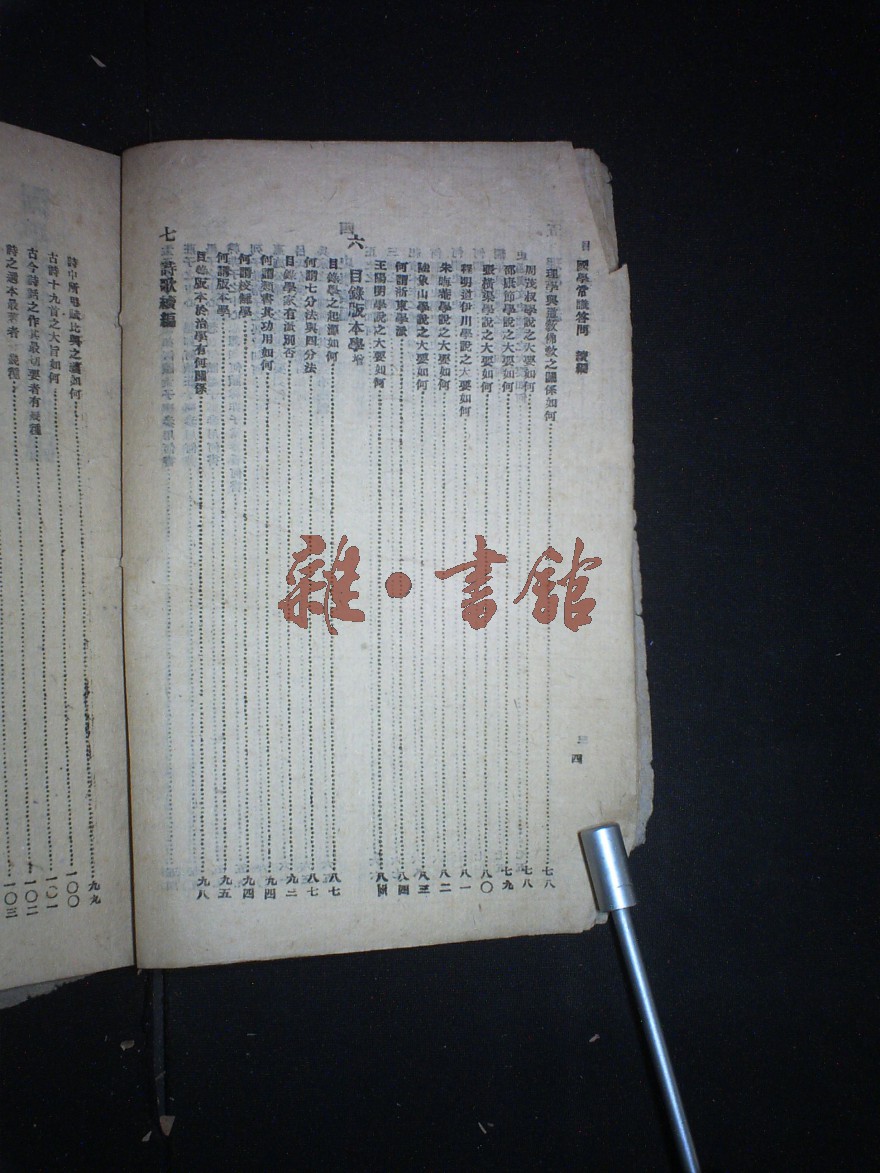 國學常識答問 續編
四
理學與道教佛教之關係如何 七八
周茂叔學說之大要如何 七八
邵康節學說之大要如何 七九
張橫渠學說之大要如何 八〇
程明道伊川學說之大要如何 八一
朱晦庵學說之大要如何 八二
陸象山學說之大要如何 八三
何謂浙東學派 八四
王陽明學說之大要如何
六 目錄版本學增
目錄學之起源如何 八七
何謂七分法與四分法 八七
目錄學家有派別否 九二
何謂類書其功用如何 九四
何謂校讎學 九四
何謂版本學 九五
目錄版本於治學有何關係 九八
七 詩歌續編
詩中所用賦比興之義如何 九九
古詩十九首之大旨如何 一〇〇
古今詩話之作其最切要者有幾種 一〇一
一〇二
詩之選本最著者 幾種 一〇三
雜·書館